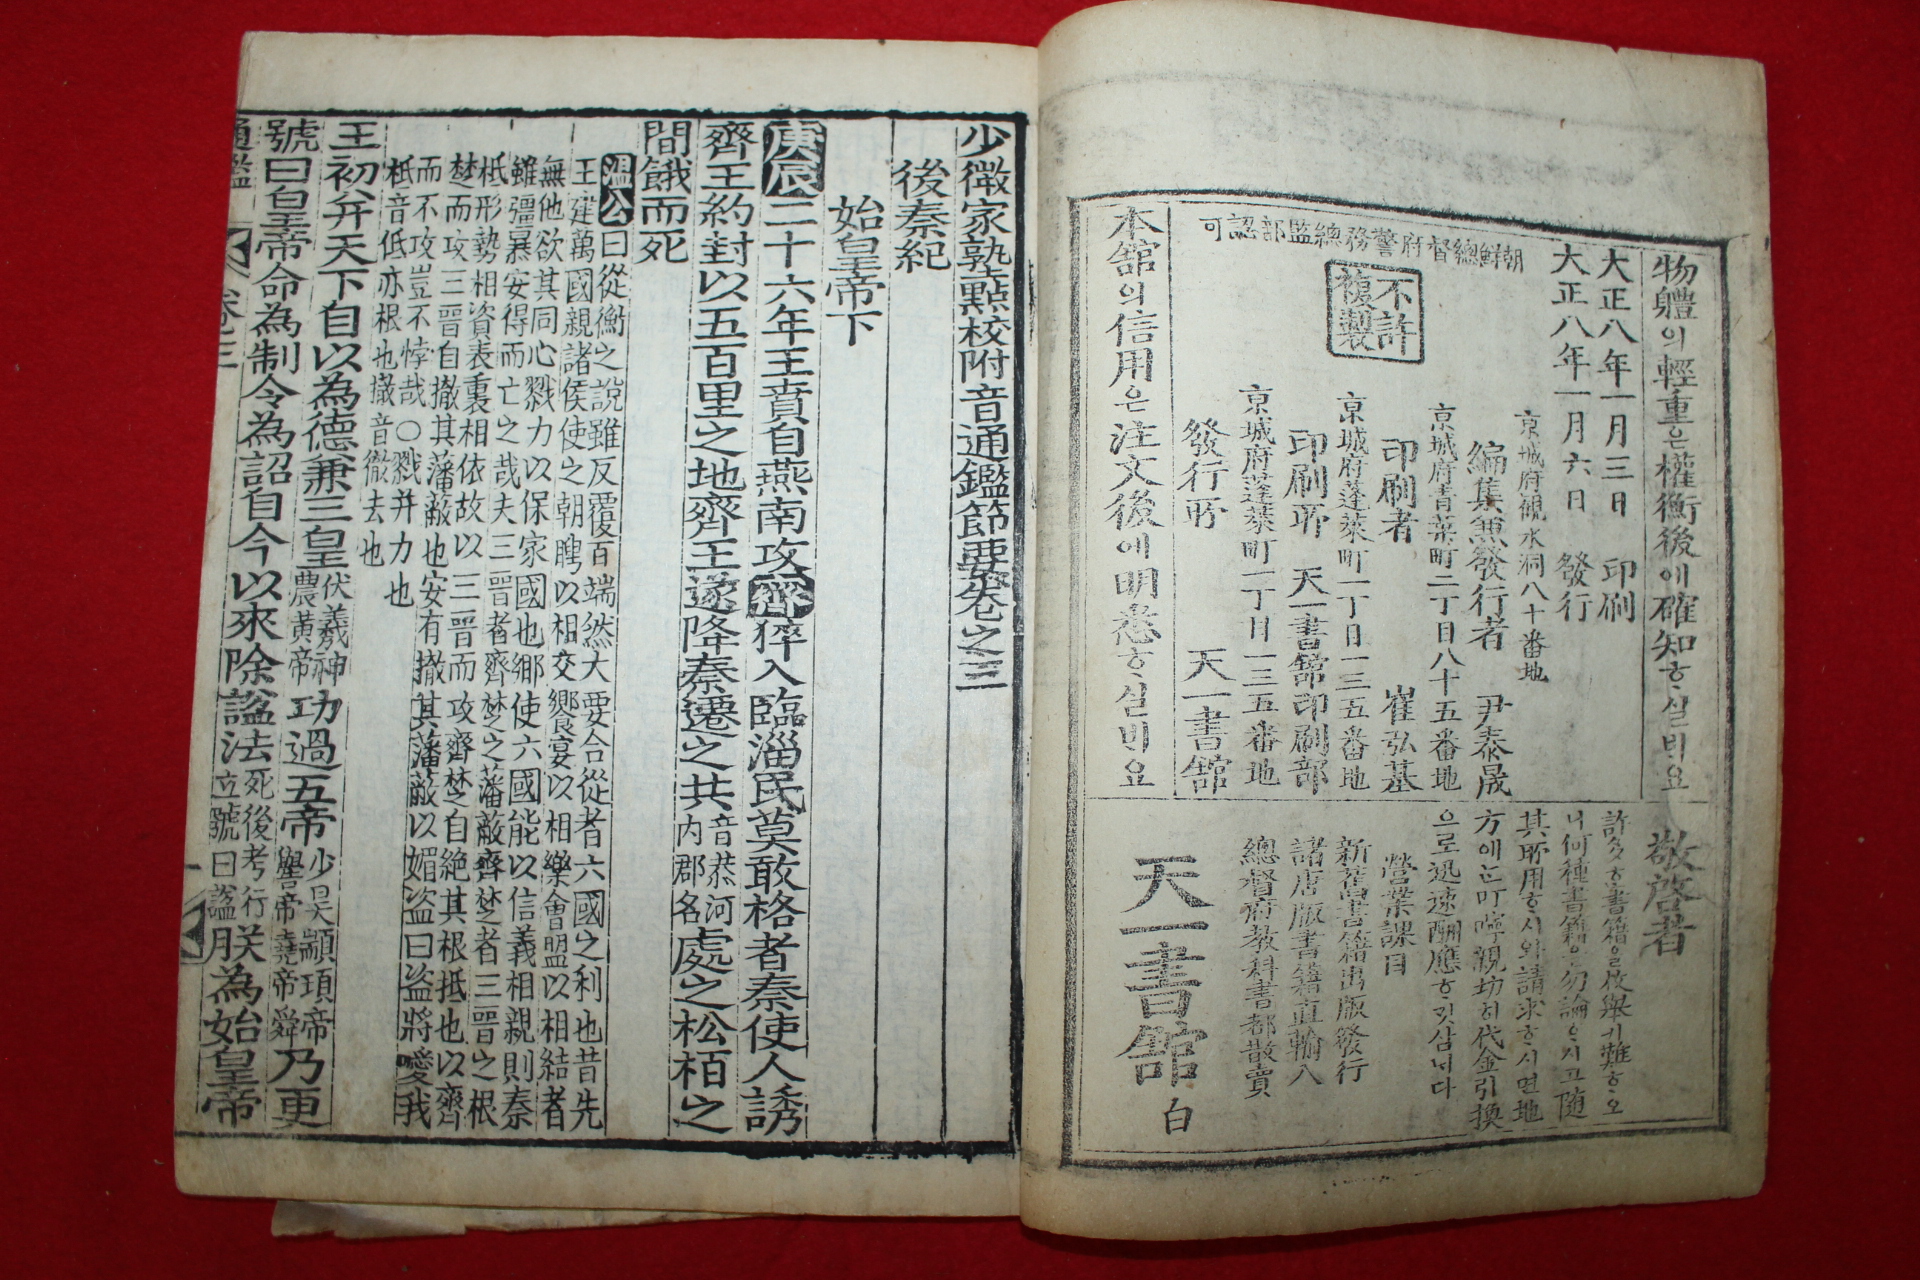 物體의輕重은權衡後에確知ᄒᆞ실비요
大正八年一月三日 印刷
大正八年一月六日 發行
朝鮮總督府警務總監部認可
不許
複製
京城府觀水洞八十番地
編集兼發行者 尹泰晟
京城府青葉町二丁目八十五番地
印刷者 崔弘基
京城府蓬萊町一丁目一三五番地
印刷所 天一書舘印刷部
京城府蓬萊町一丁目一三五番地
發行所 天一書舘
本舘의信用은注文後에明悉ᄒᆞ실비요
敬啓者
許多ᄒᆞᆫ書籍을枚擧키難ᄒᆞ오
니何種書籍은勿論ᄒᆞ시고隨
其所用ᄒᆞ시와請求ᄒᆞ시면地
方에ᄂᆞᆫ叮嚀親切히代金引換
으로迅速酬應ᄒᆞ깃삽ᄂᆡ다
營業課目
新舊書籍出版發行
諸唐版書籍直輸入
總督府敎科書都散賣
天一書舘 白
少微家塾點校附音通鑑節要卷之三
後秦紀
始皇帝下
庚辰二十六年王賁自燕南攻齊猝入臨淄民莫敢格者秦使人誘
齊王約封以五百里之地齊王遂降秦遷之共音恭河內郡名處之松栢之
間餓而死
溫公曰從衡之說雖反覆百端然大要合從者六國之利也昔先
王建萬國親諸侯使之朝聘以相交饗宴以相樂會盟以相結者
無他欲其同心戮力以保家國也鄕使六國能以信義相親則秦
雖彊暴安得而亡之哉夫三晉者齊楚之藩蔽齊楚者三晉之根
柢形勢相資表裏相依故以三晉而攻齊楚自絶其根抵也以齊
楚而攻三晉自撤其藩蔽也安有撤其藩蔽以媚盜曰盜將愛我
而不攻豈不悖哉○戮并力也
柢音低亦根也撤音徹去也
王初并天下自以為德兼三皇伏羲神農黃帝功過五帝少昊顓頊帝嚳帝堯帝舜乃更
號曰皇帝命為制令為詔自今以來除謚法死後考行立號曰謚朕為始皇帝
通鑑 卷之三